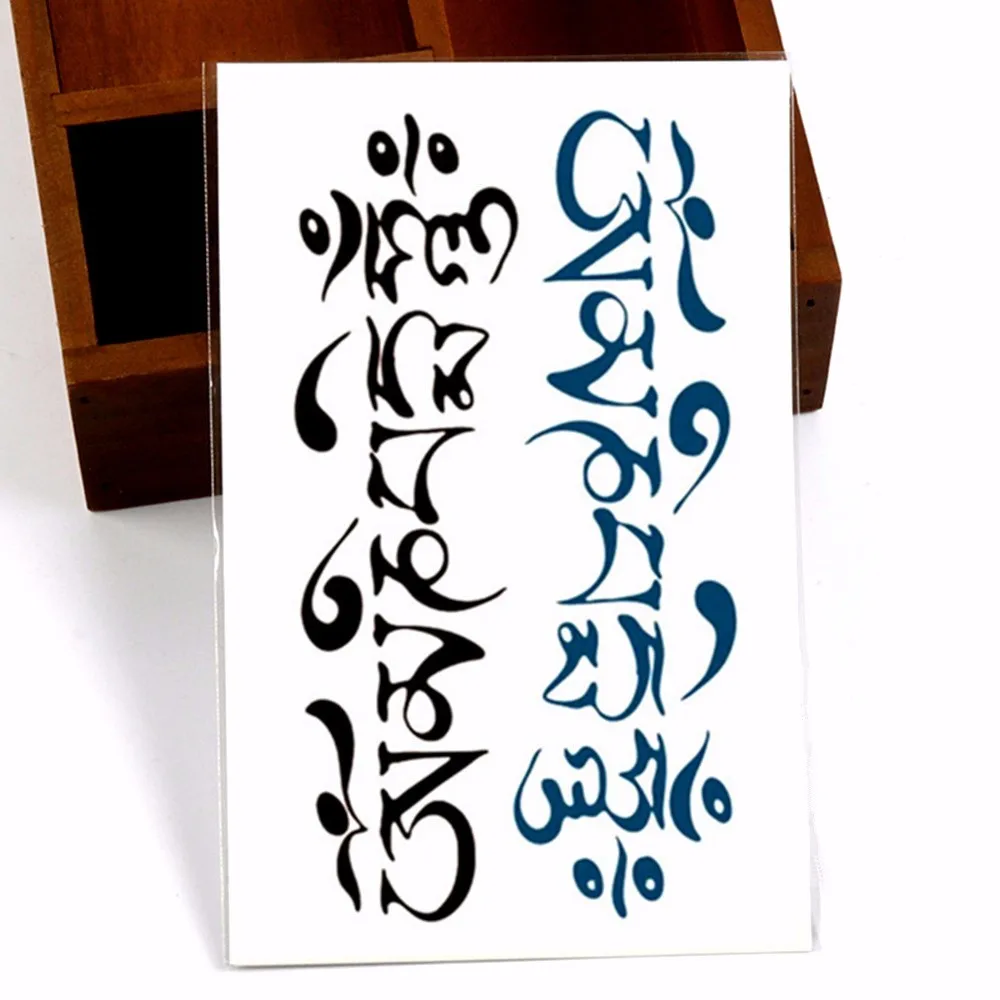 ༀམཎིཔདྨེཧཱུྃ༔
ༀམཎིཔདྨེཧཱུྃ༔